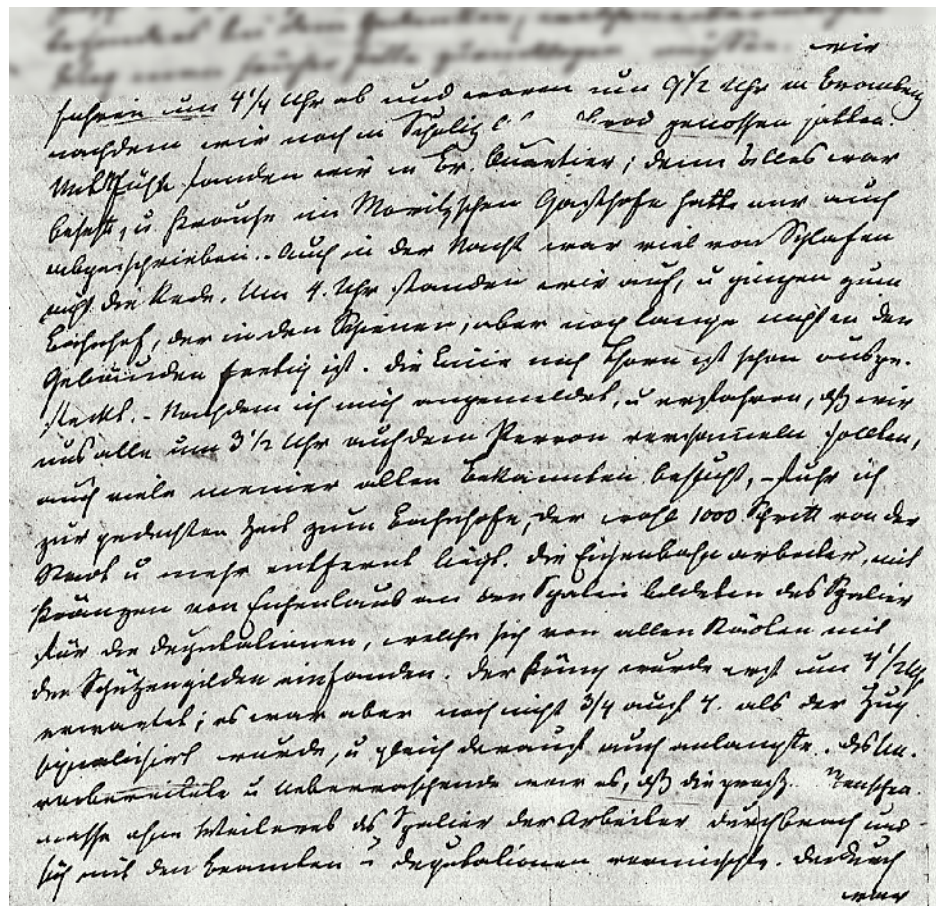 wir
fuhren um 4 1/4 Uhr ab und waren um 9 1/2 Uhr in Bromberg
nachdem wir noch in Schulitz Brod genossen hatten.
Mit Mühe fanden wir in Br. Quartier; denn Alles war
besetzt, u. Krause im Moritzschen Gasthofe hatte nur auch
abgeschrieben. Auch in der Nacht war viel von Schlafen
nicht die Rede. Um 4. Uhr standen wir auf, u gingen zum
Bahnhof, der in den Schienen, aber noch lange nicht in den
Gebäuden fertig ist. Die Linie nach Thorn ist schon ausge-
steckt. - Nachdem ich mich angemeldet, u erfahren, dß wir
uns alle um 3 1/2 Uhr auf dem Perron versammeln sollten,
auch viele meiner alten Bekannten besucht, - fuhr ich
zur gedachten Zeit zum Bahnhofe, der wohl 1000 Schritt von der
Stadt u mehr entfernt liegt. Die Eisenbahnarbeiter, mit
Kränzen von Eichenlaub an den Spaten bildeten das Spalier
für die Deputationen, welche sich von allen Städten mit
den Schützengilden einfanden. Der König wurde erst um 4 1/2 Uhr
erwartet; es war aber noch nicht 3/4 auf 4. als der Zug
signalisirt wurde, u gleich darauf auch anlangte. Das Un-
vorbereitete u Ueberraschende war es, dß die große Menschen-
masse ohne Weiteres das Spalier der Arbeiter durchbrach und
sich mit den Beamten u Deputationen vermischte. Dadurch
war